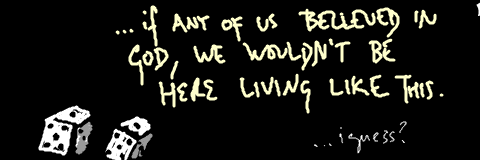 ...if ANY OF US BELIEVED IN
GOD, WE WOULDN'T BE
HERE LIVING LIKE THIS.
...iguess?